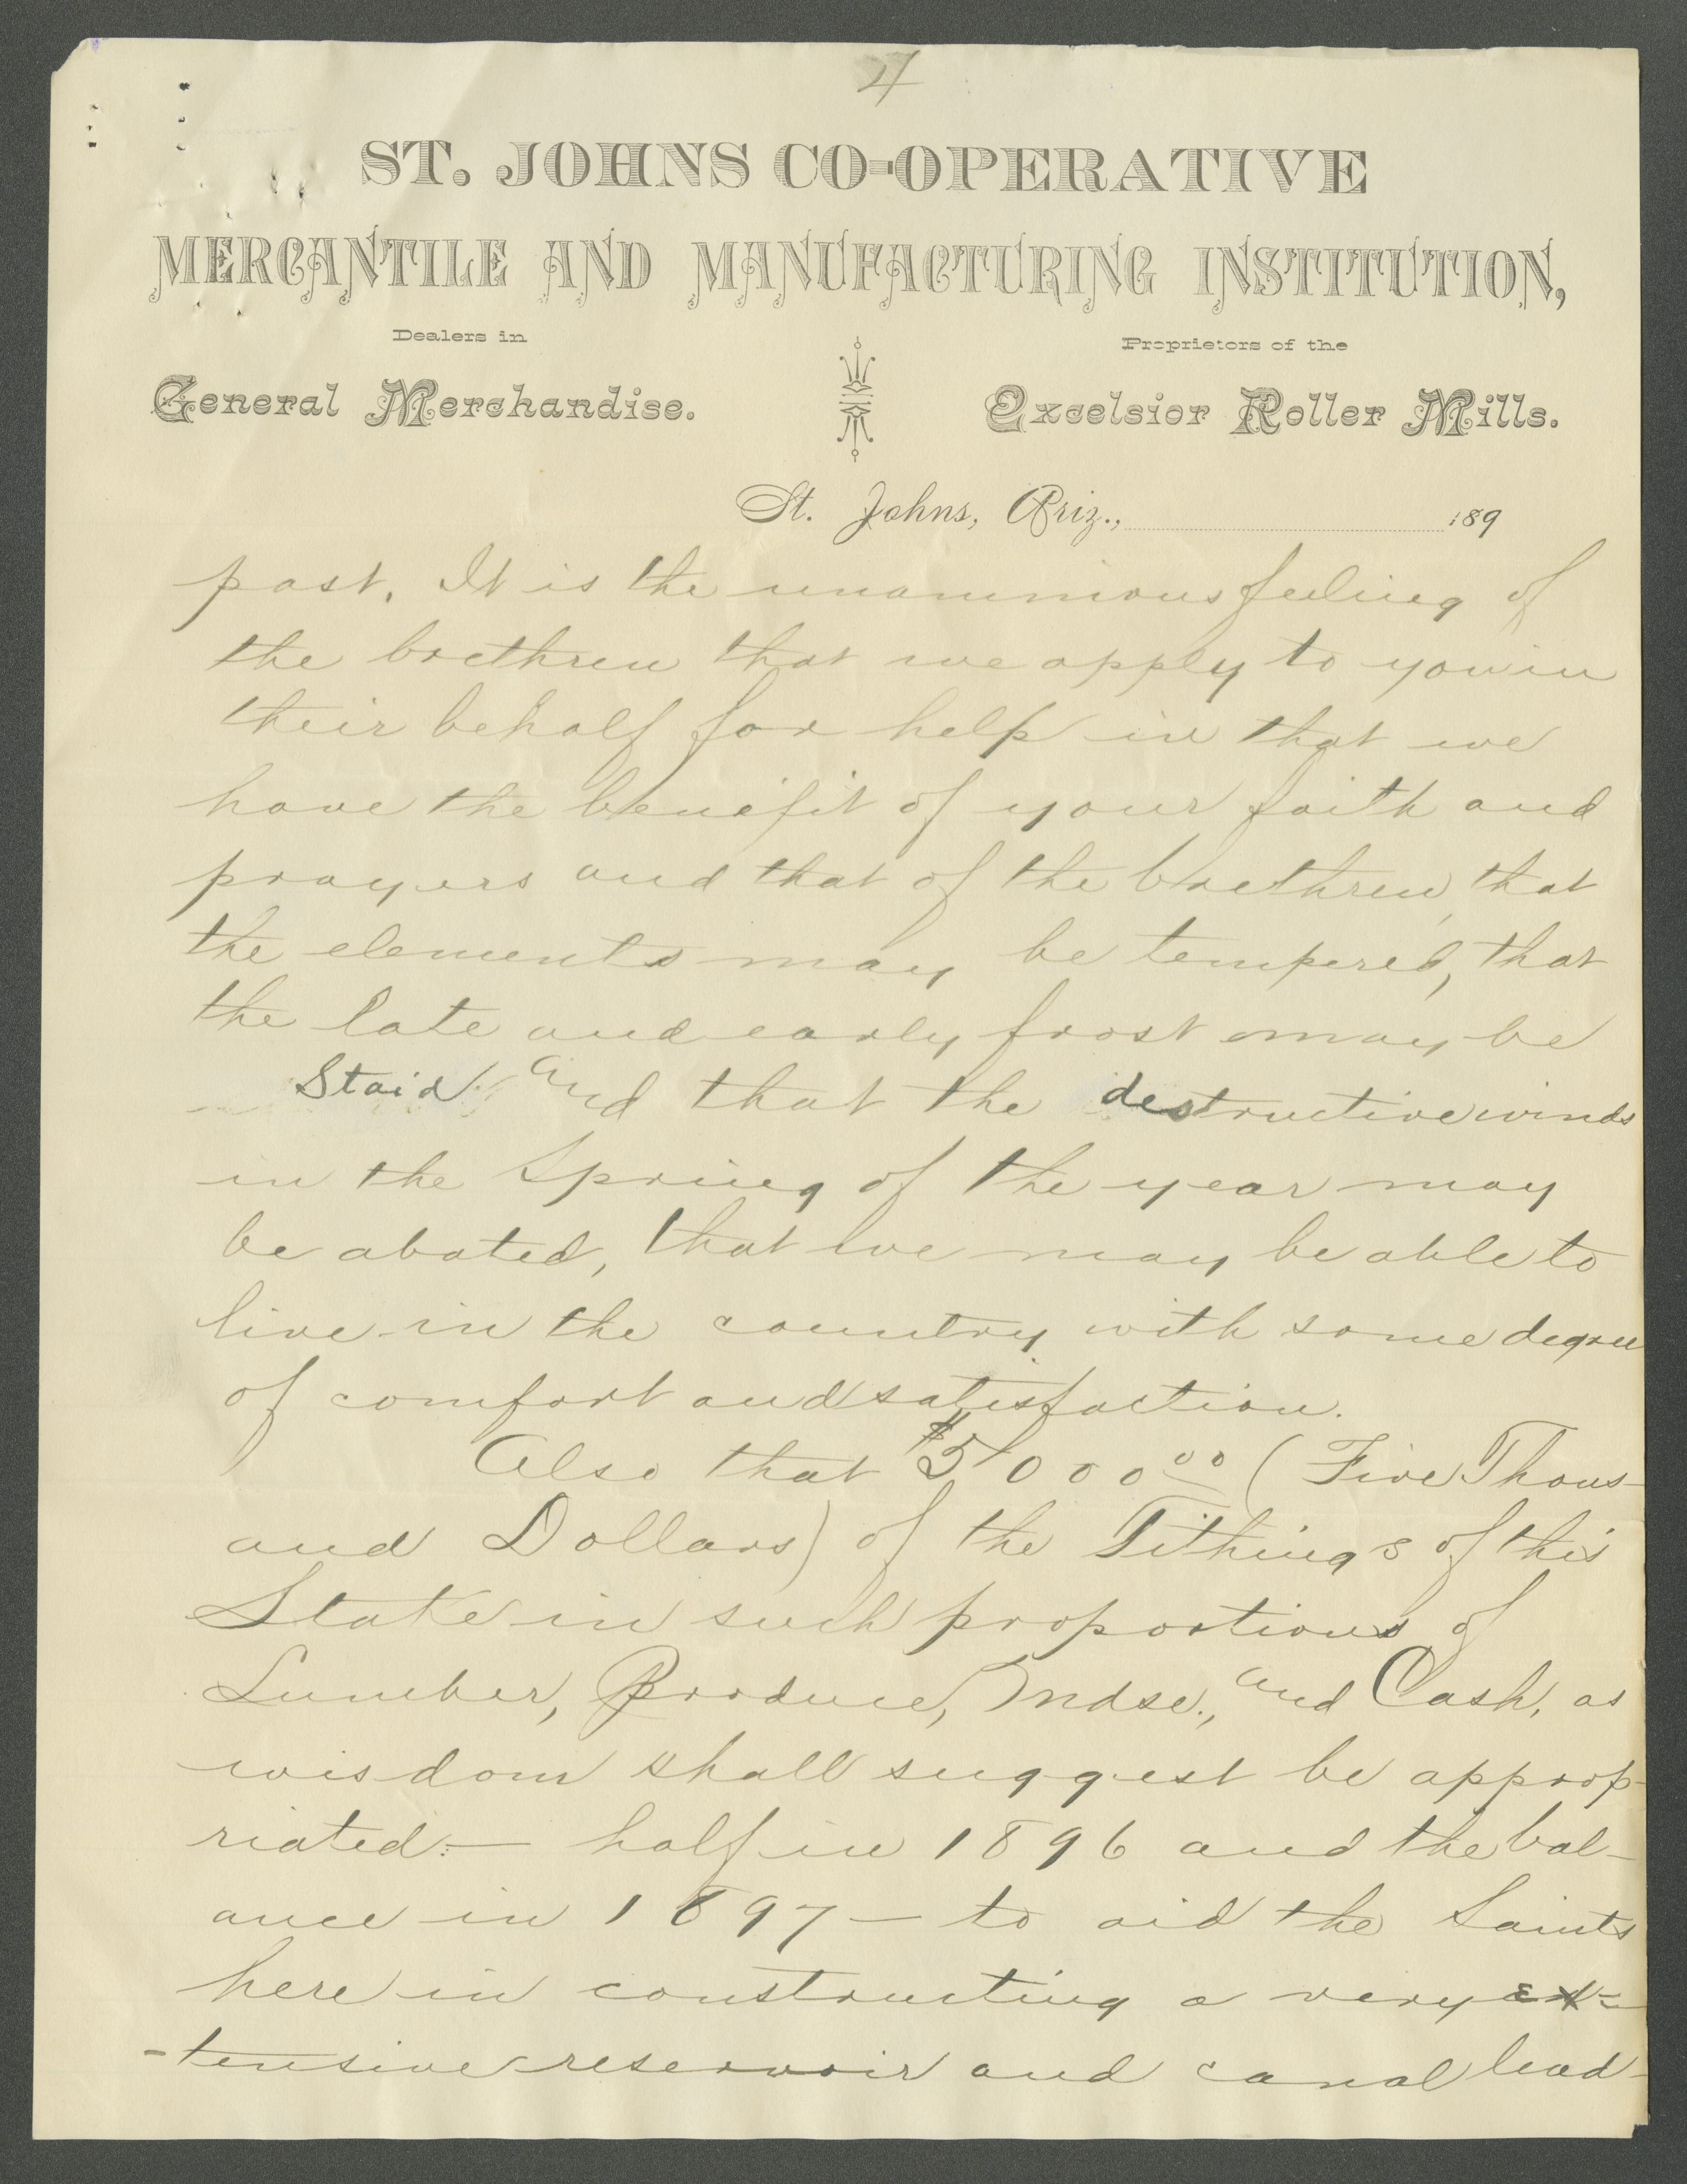 4
ST. JOHNS CO-OPERATIVE
MERCANTILE AND MANUFACTURING INSTITUTION,
Dealers in
General Merchandise.
Proprietors of the
Excelsior Roller Mills.
St. Johns, Ariz., 189
past. It is the unanimous feeling of
the brethren that we apply to you in
their behalf for help in that we
have the benefit of your faith and
prayers and that of the brethren, that
the elements may be tempered, that
the late and early frost may be
Staid and that the destructive winds
in the Spring of the year may
be abated, that we may be able to
live in the country with some degree
of comfort and satisfaction.
Also that $5000.00 (Five Thous-
and Dollars) of the Tithings of this
Stake in such proportions of
Lumber, Produce, Mdse., and Cash, as
wisdom shall suggest be approp-
riated:— half in 1896 and the bal-
ance in 1897 — to aid the Saints
here in constructing a very ex-
-tensive reservoir and canal lead-